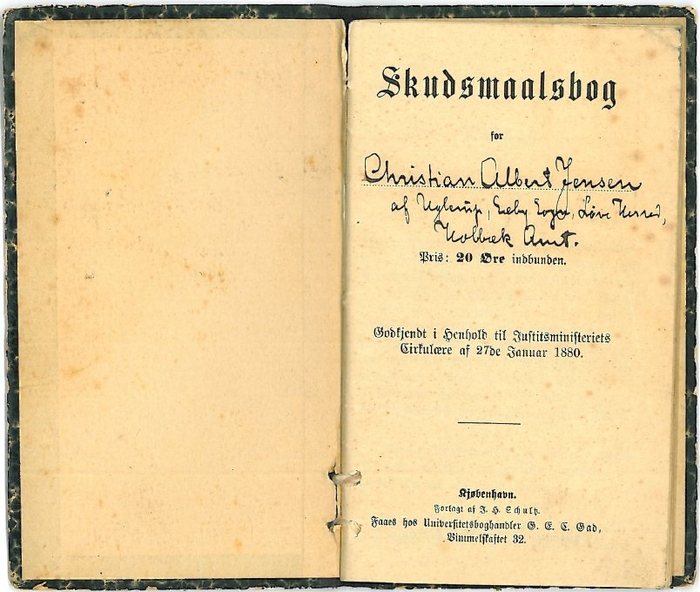 Skudsmaalsbog
for
Christian Albert Jensen
af Uglerup, Eeby Sogn, Løve Herred,
Holbæk Amt.
Pris: 20 Øre indbunden.
Godkjendt i Henhold til Justitsministeriets
Cirkulære af 27de Januar 1880.
Kjøbenhavn.
Forlagt af J. H. Schultz.
Faaes hos Universitetsboghandler G. E. C. Gad,
Vimmelskaftet 32.